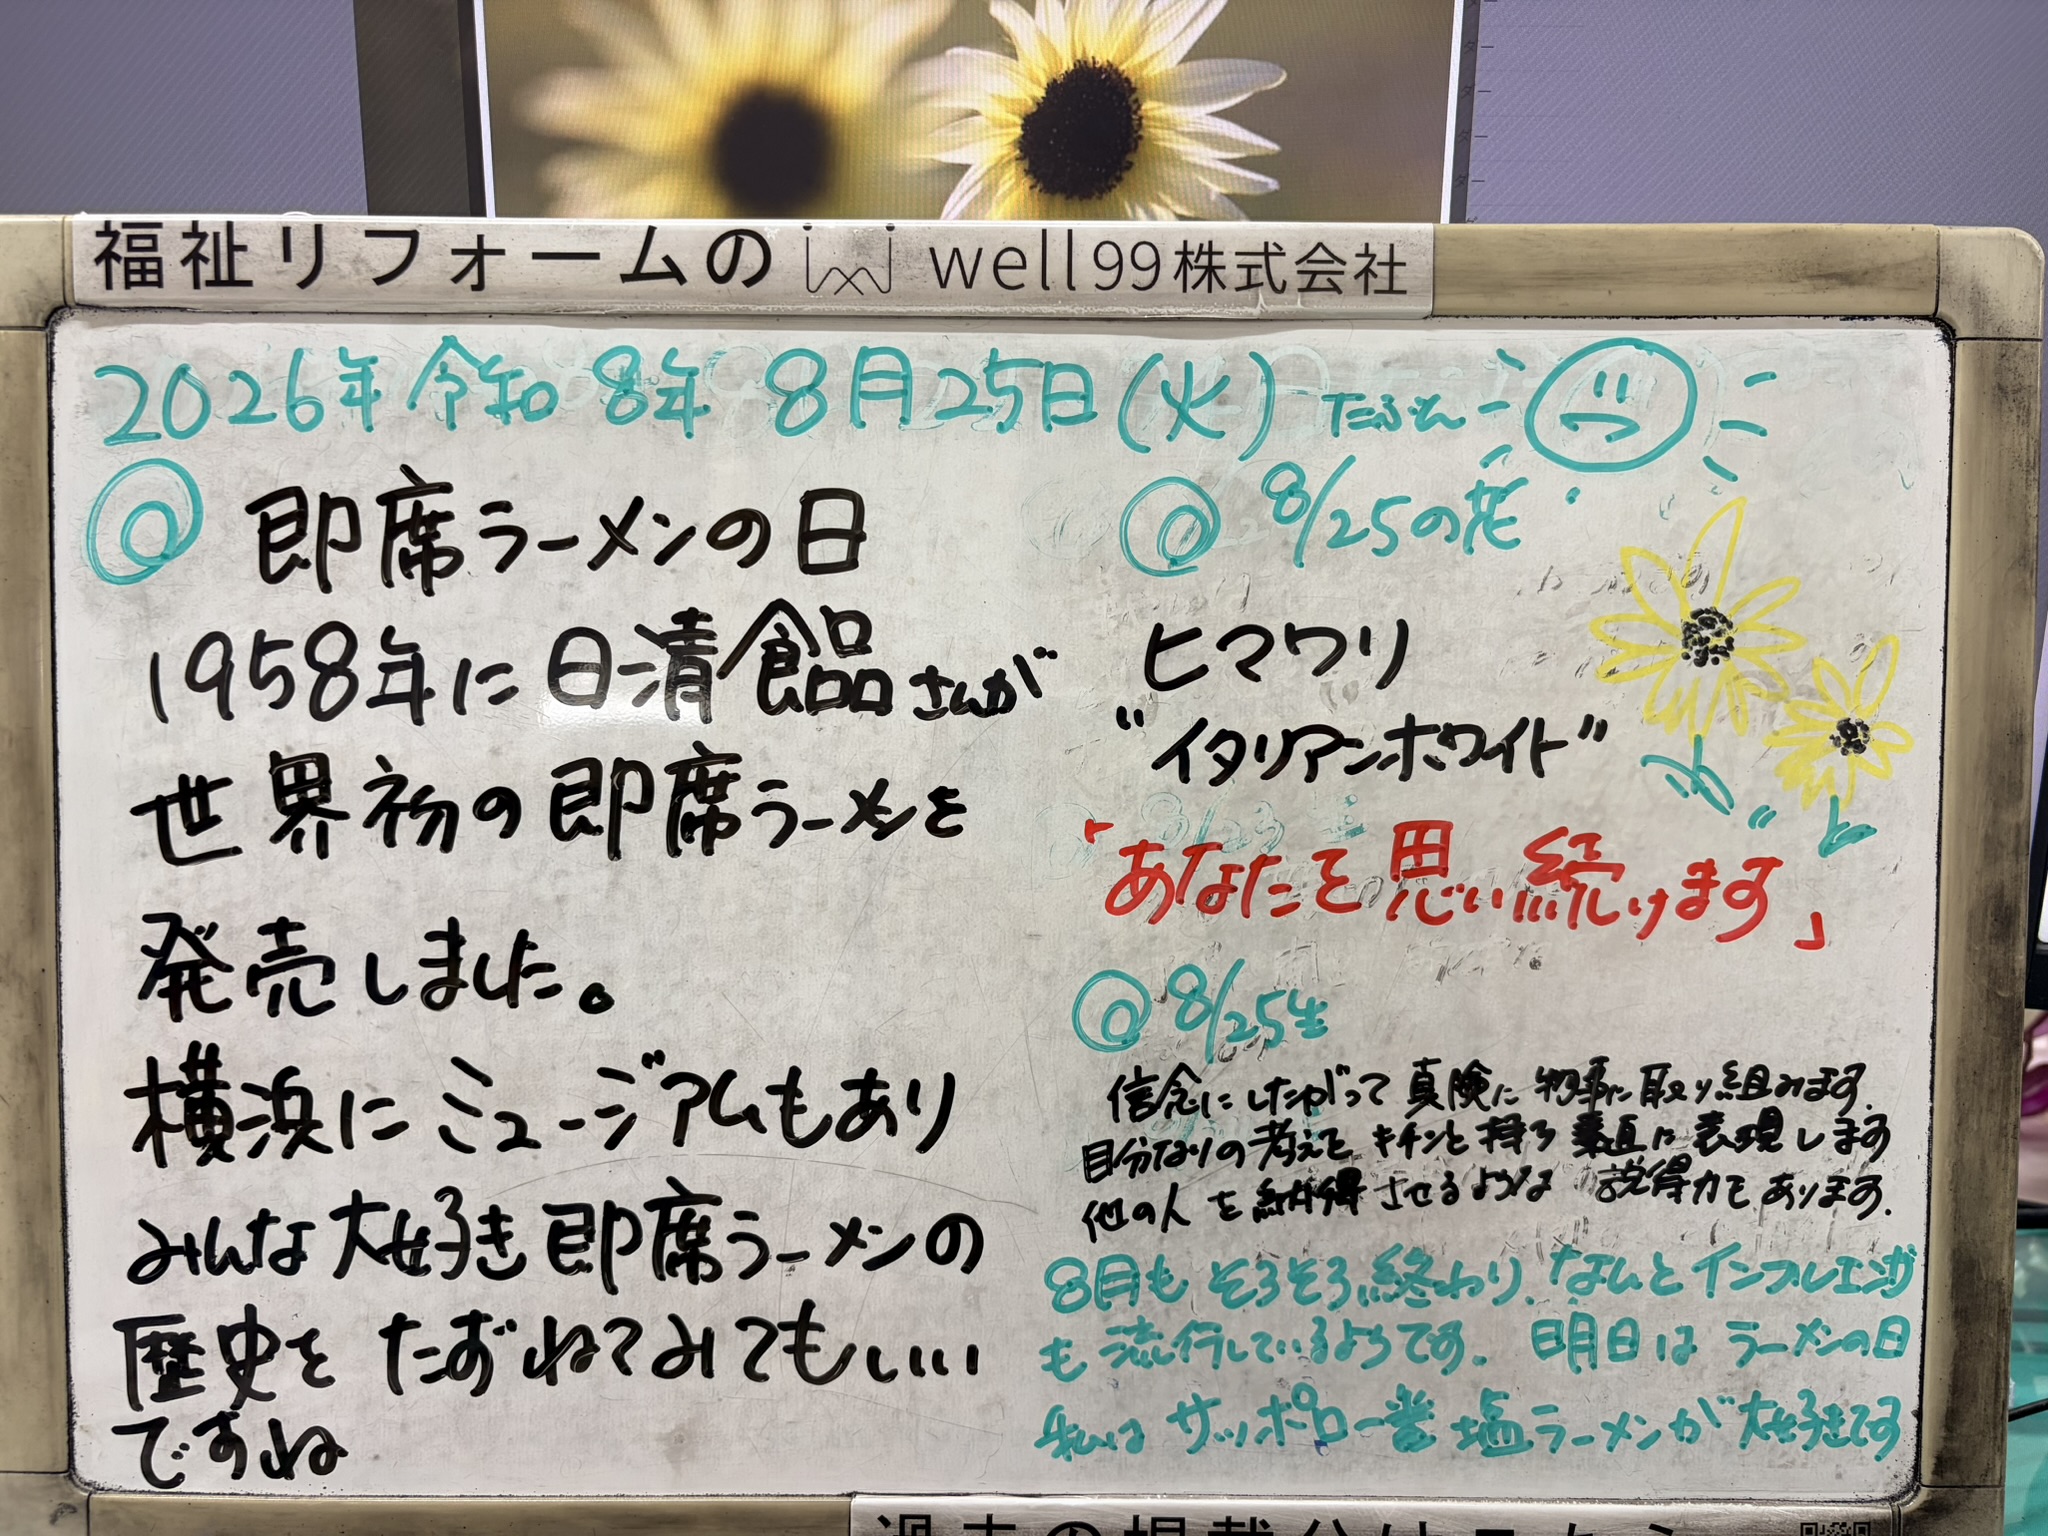 福祉リフォームの well99株式会社
2026年 令和8年 8月25日(火) たぶん
◎ 即席ラーメンの日
1958年に日清食品さんが
世界初の即席ラーメンを
発売しました。
横浜にミュージアムもあり
みんな大好き即席ラーメンの
歴史を たずねてみてもいい
ですね
◎ 8/25の花
ヒマワリ
“イタリアンホワイト”
「あなたを思い続けます」
◎ 8/25生
信念にしたがって真険に物事に取り組みます.
自分なりの考えをキチンと持ち素直に表現します
他の人を納得させるような説得力もあります.
8月もそろそろ終わり.なんとインフルエンザ
も流行しているようです. 明日はラーメンの日
私はサッポロ一番塩ラーメンが大好きです